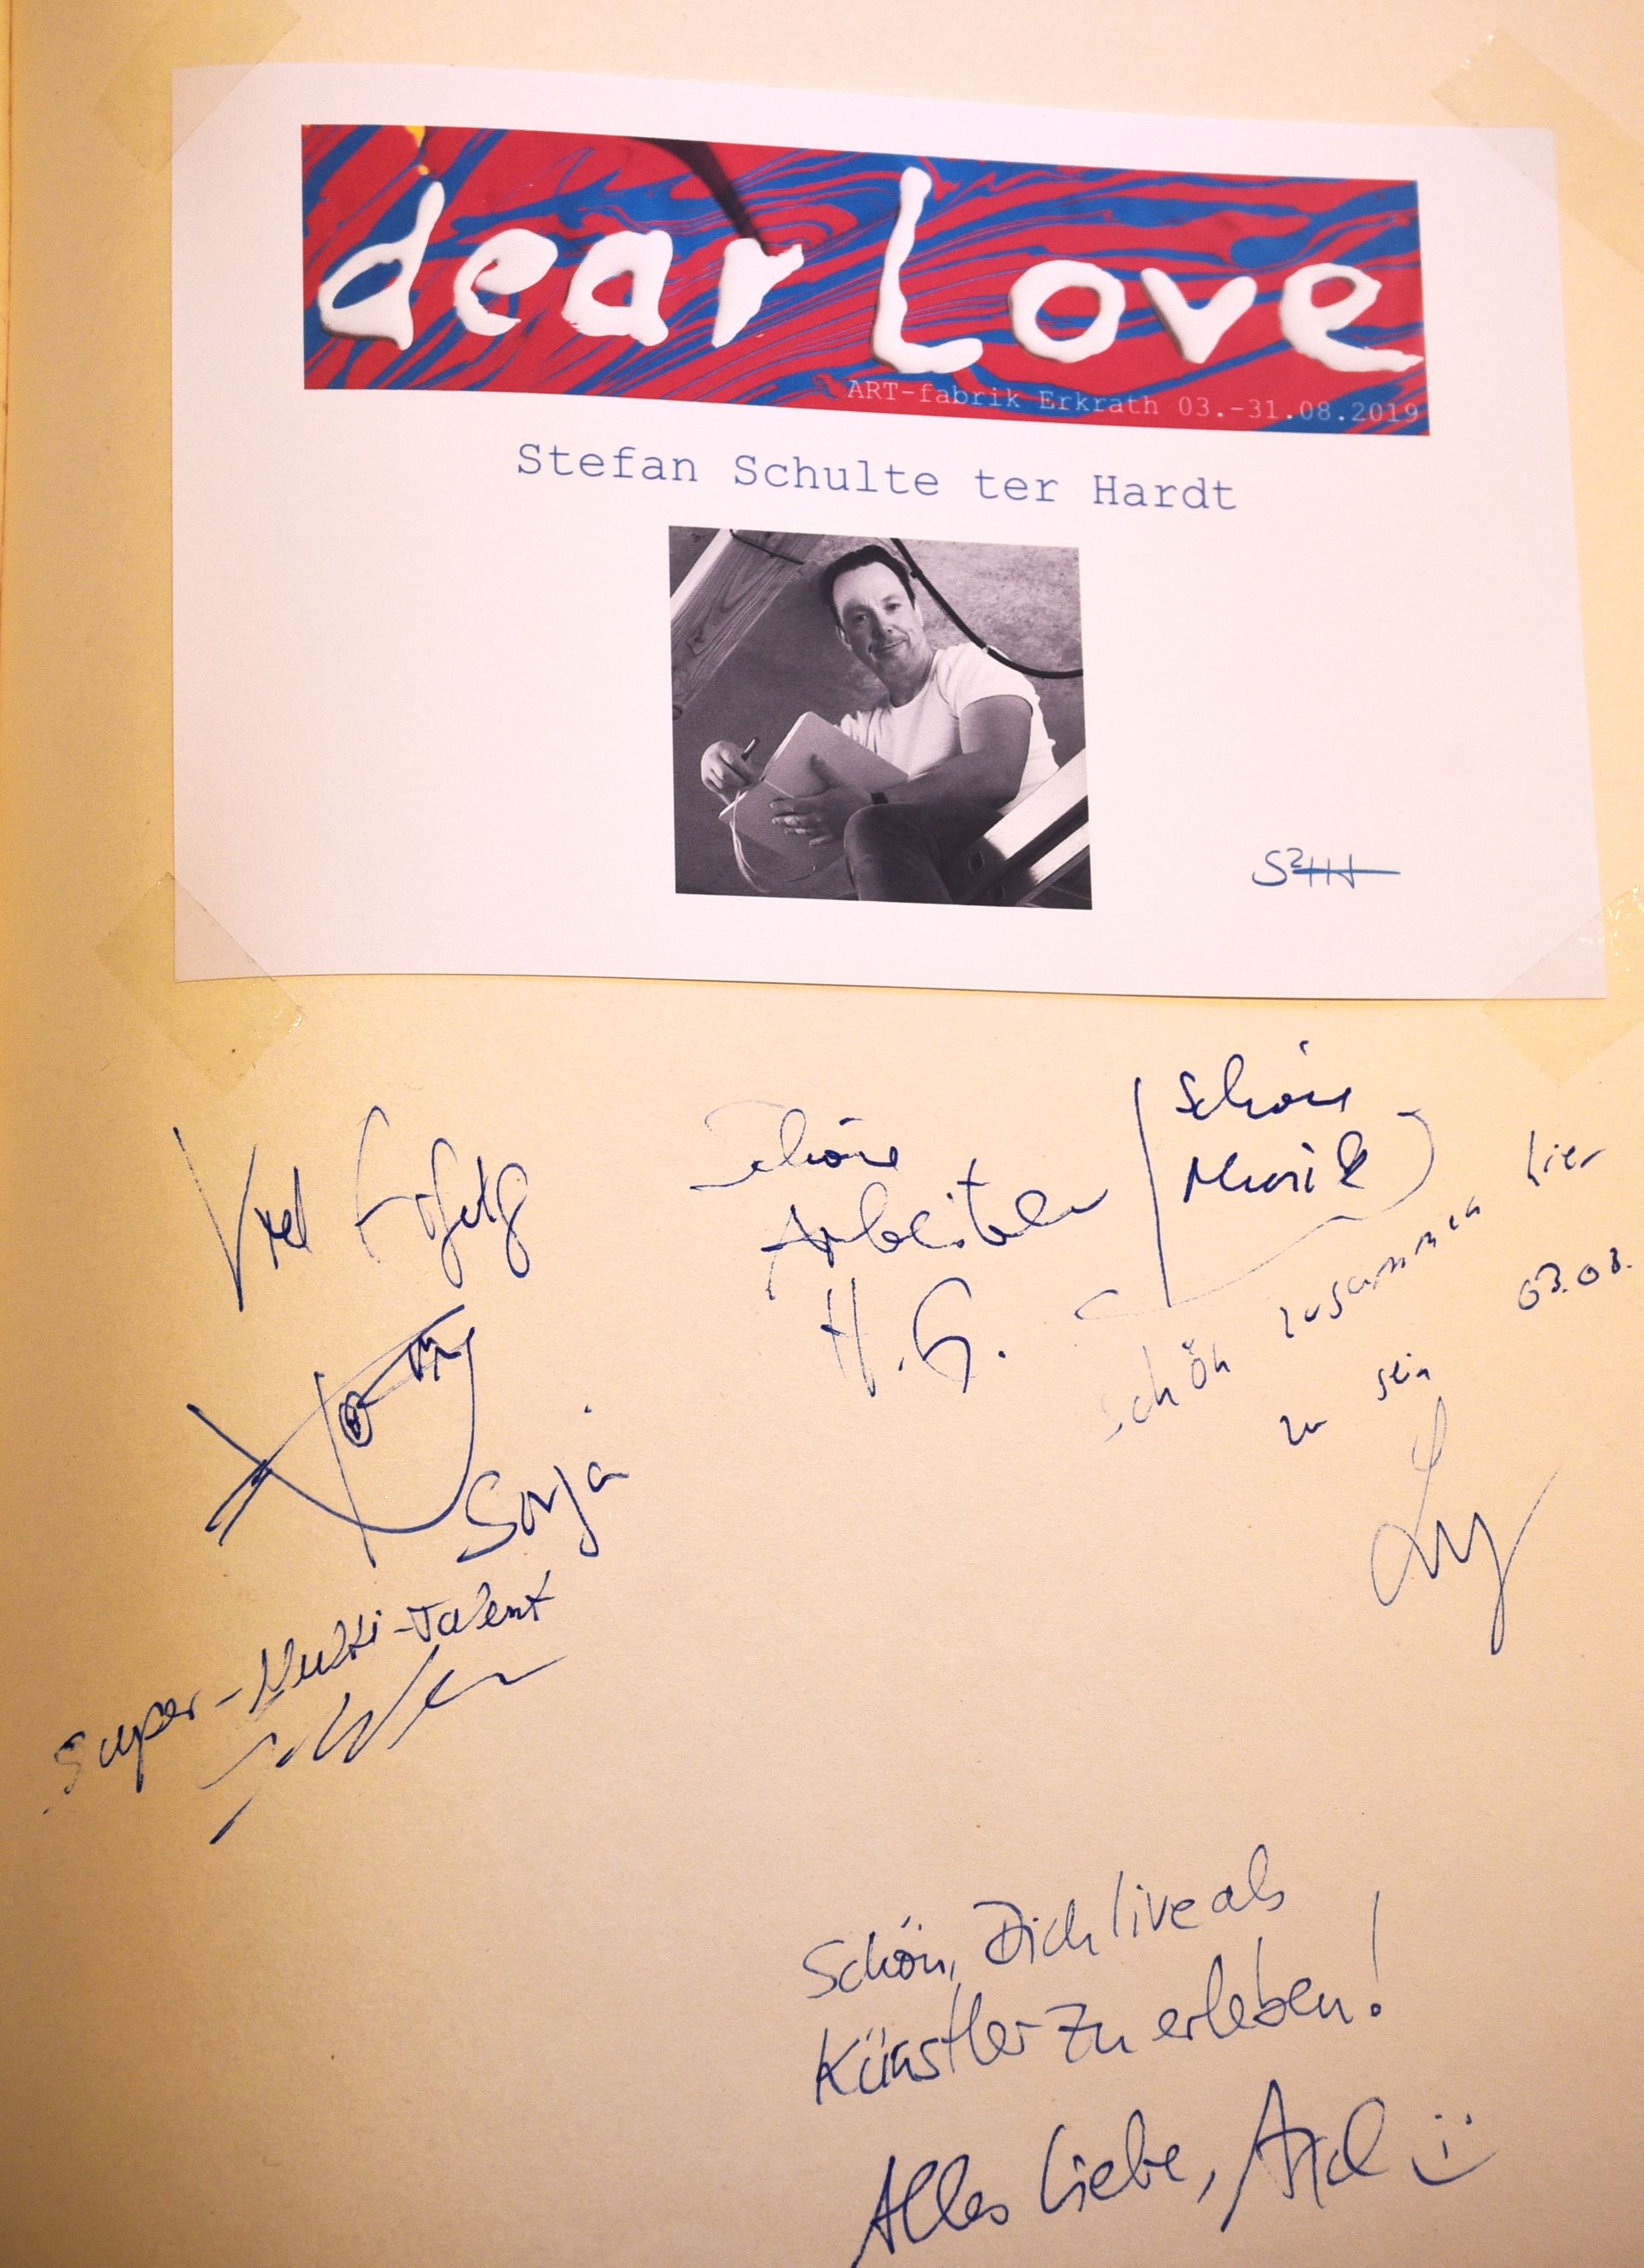 dear Love
ART-fabrik Erkrath 03.-31.08.2019
Stefan Schulte ter Hardt
Viel Erfolg
Sonja
Super-Multi-Talent
Schöne
Arbeiten
H.G.
Schöne
Musik
schön zusammen hier
zu sein 03.08.
Schön, Dich live als
Künstler zu erleben!
Alles Liebe, Axel